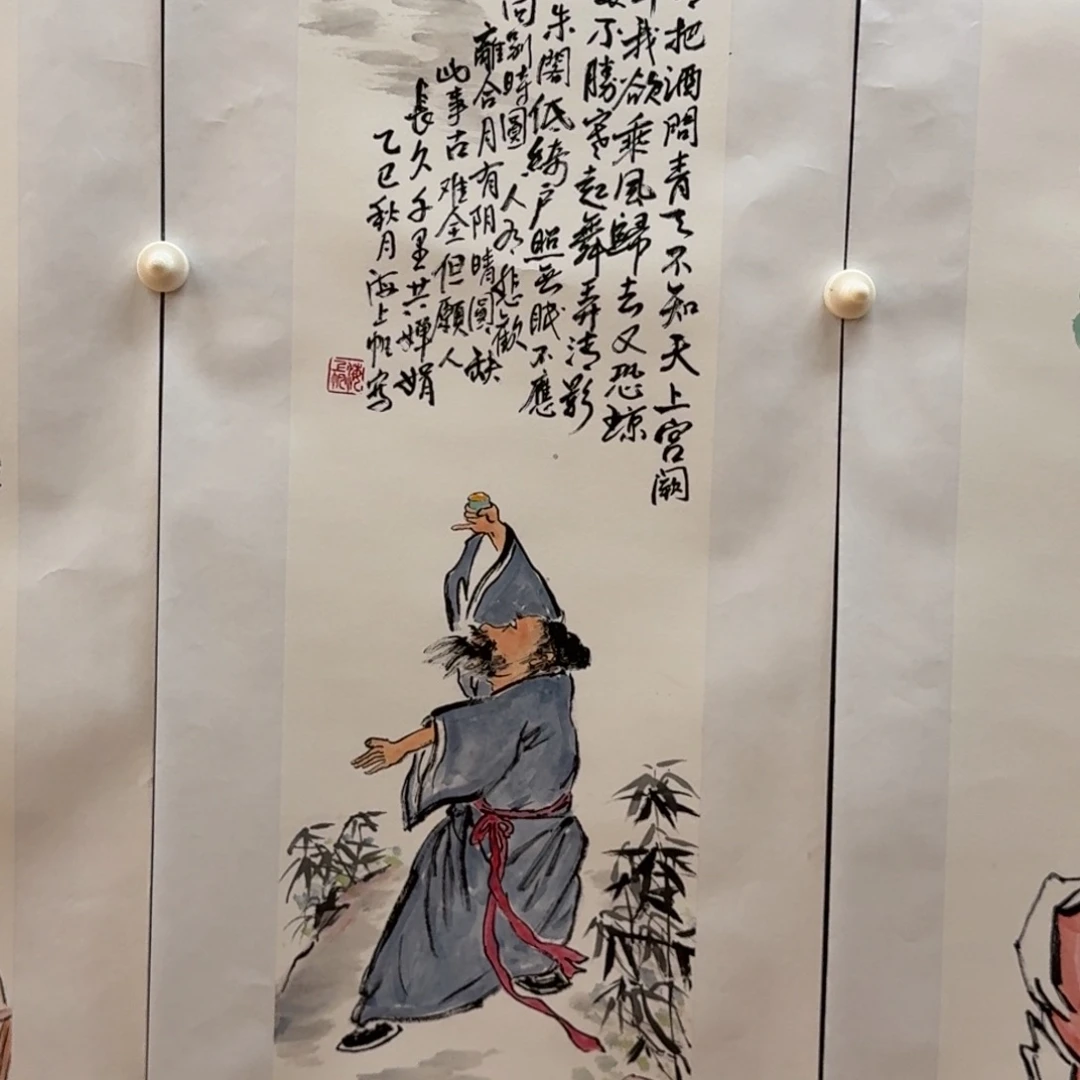 把酒問青天不知天上宮闕
我欲乘風歸去又恐琼
不勝寒起舞弄清影
朱閣低綺户照无眠不應
向別時圓人有悲歡
離合月有阴晴圓缺
此事古难全但願人
長久千里共嬋娟
乙巳秋月海上帆写